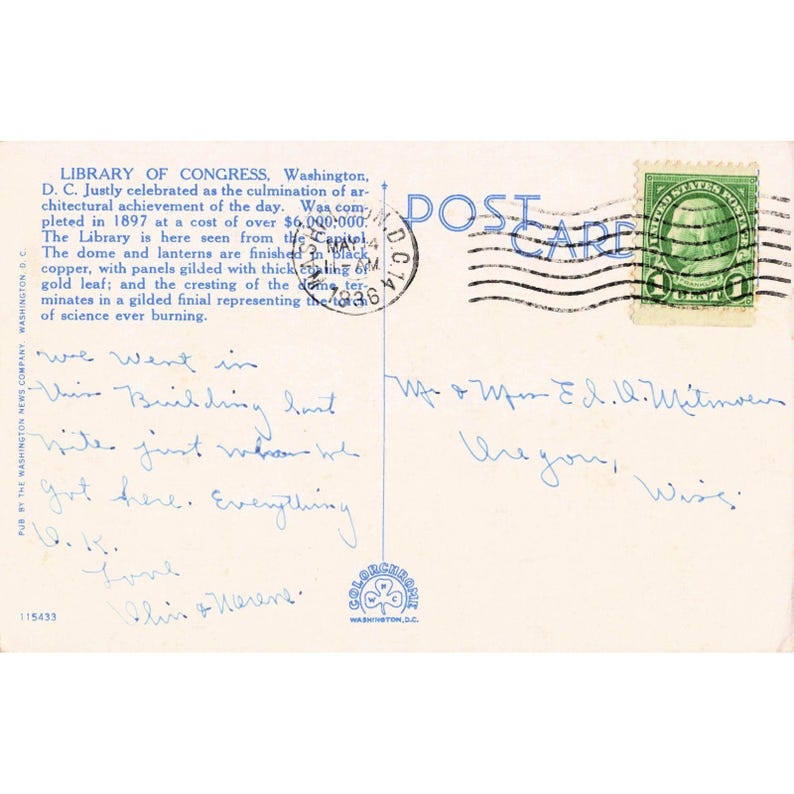 LIBRARY OF CONGRESS, Washington,
D. C. Justly celebrated as the culmination of ar-
chitectural achievement of the day. Was com-
pleted in 1897 at a cost of over $6,000,000.
The Library is here seen from the Capitol.
The dome and lanterns are finished in black
copper, with panels gilded with thick coating of
gold leaf; and the cresting of the dome ter-
minates in a gilded finial representing the torch
of science ever burning.
We went in
this Building last
nite just when we
got here. Everything
O.K.
Love
& 
PUB. BY THE WASHINGTON NEWS COMPANY, WASHINGTON, D. C.
115433
POST
CARD
WASHINGTON, D.C. 14
MAY 14
AM
1936
UNITED STATES POSTAGE
FRANKLIN
1 CENT 1
Mr & Mrs Ed. O.
Oregon,
Wisc.
COLORCHROME
W N C
WASHINGTON, D.C.